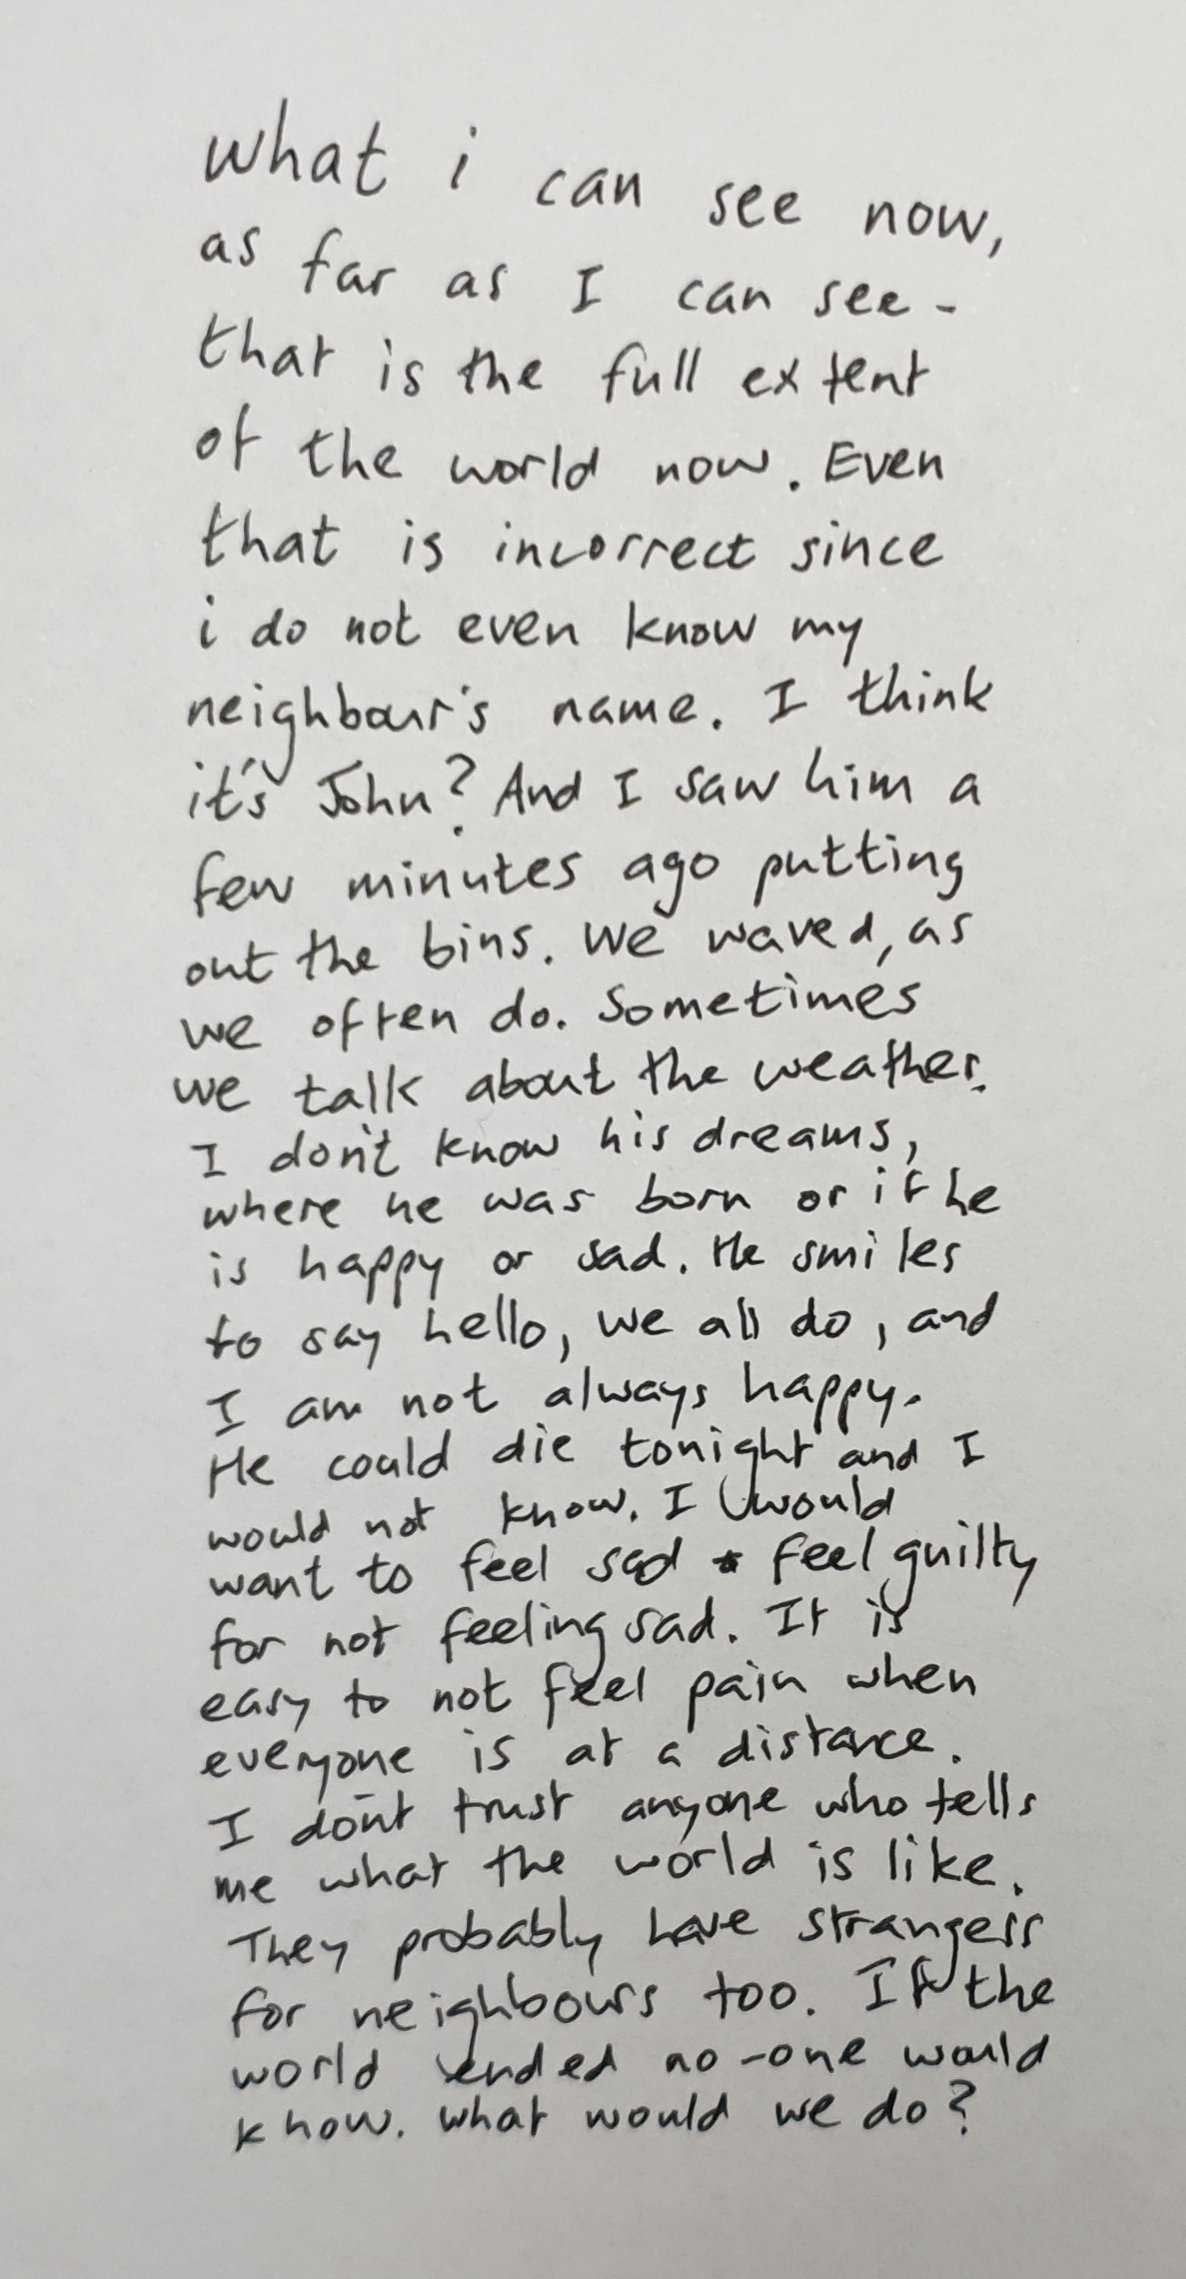 what i can see now,
as far as I can see -
that is the full extent
of the world now. Even
that is incorrect since
i do not even know my
neighbour's name. I think
it's John? And I saw him a
few minutes ago putting
out the bins. We waved, as
we often do. Sometimes
we talk about the weather.
I don't know his dreams,
where he was born or if he
is happy or sad. He smiles
to say hello, we all do, and
I am not always happy.
He could die tonight and I
would not know. I would
want to feel sad & feel guilty
for not feeling sad. It is
easy to not feel pain when
everyone is at a distance.
I don't trust anyone who tells
me what the world is like.
They probably have strangers
for neighbours too. If the
world ended no-one would
know. What would we do?